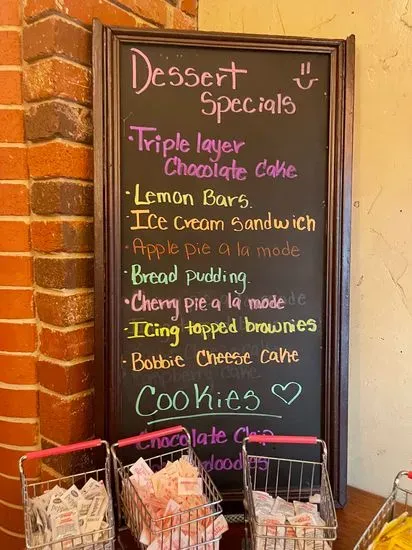 Dessert
Specials
· Triple layer
Chocolate Cake
· Lemon Bars.
· Ice Cream Sandwich
· Apple pie a la mode
· Bread pudding
· Cherry pie a la mode
· Icing topped brownies
· Bobbie Cheese Cake
Cookies
Chocolate Chip